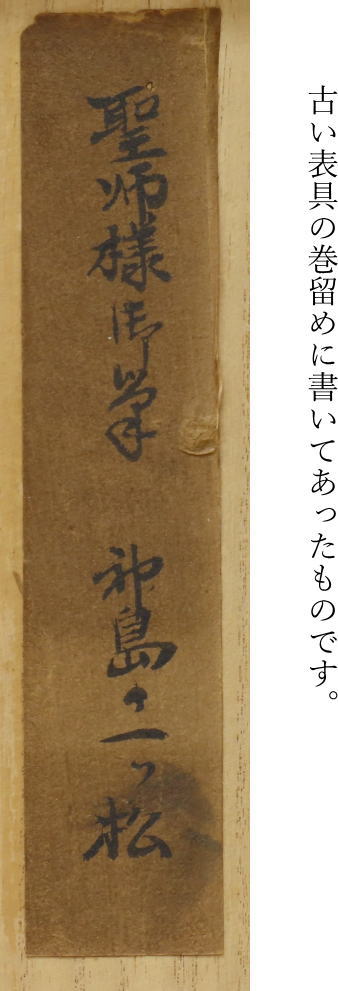 古い表具の巻留めに書いてあったものです。
聖师様御筆 神島の一ツ松